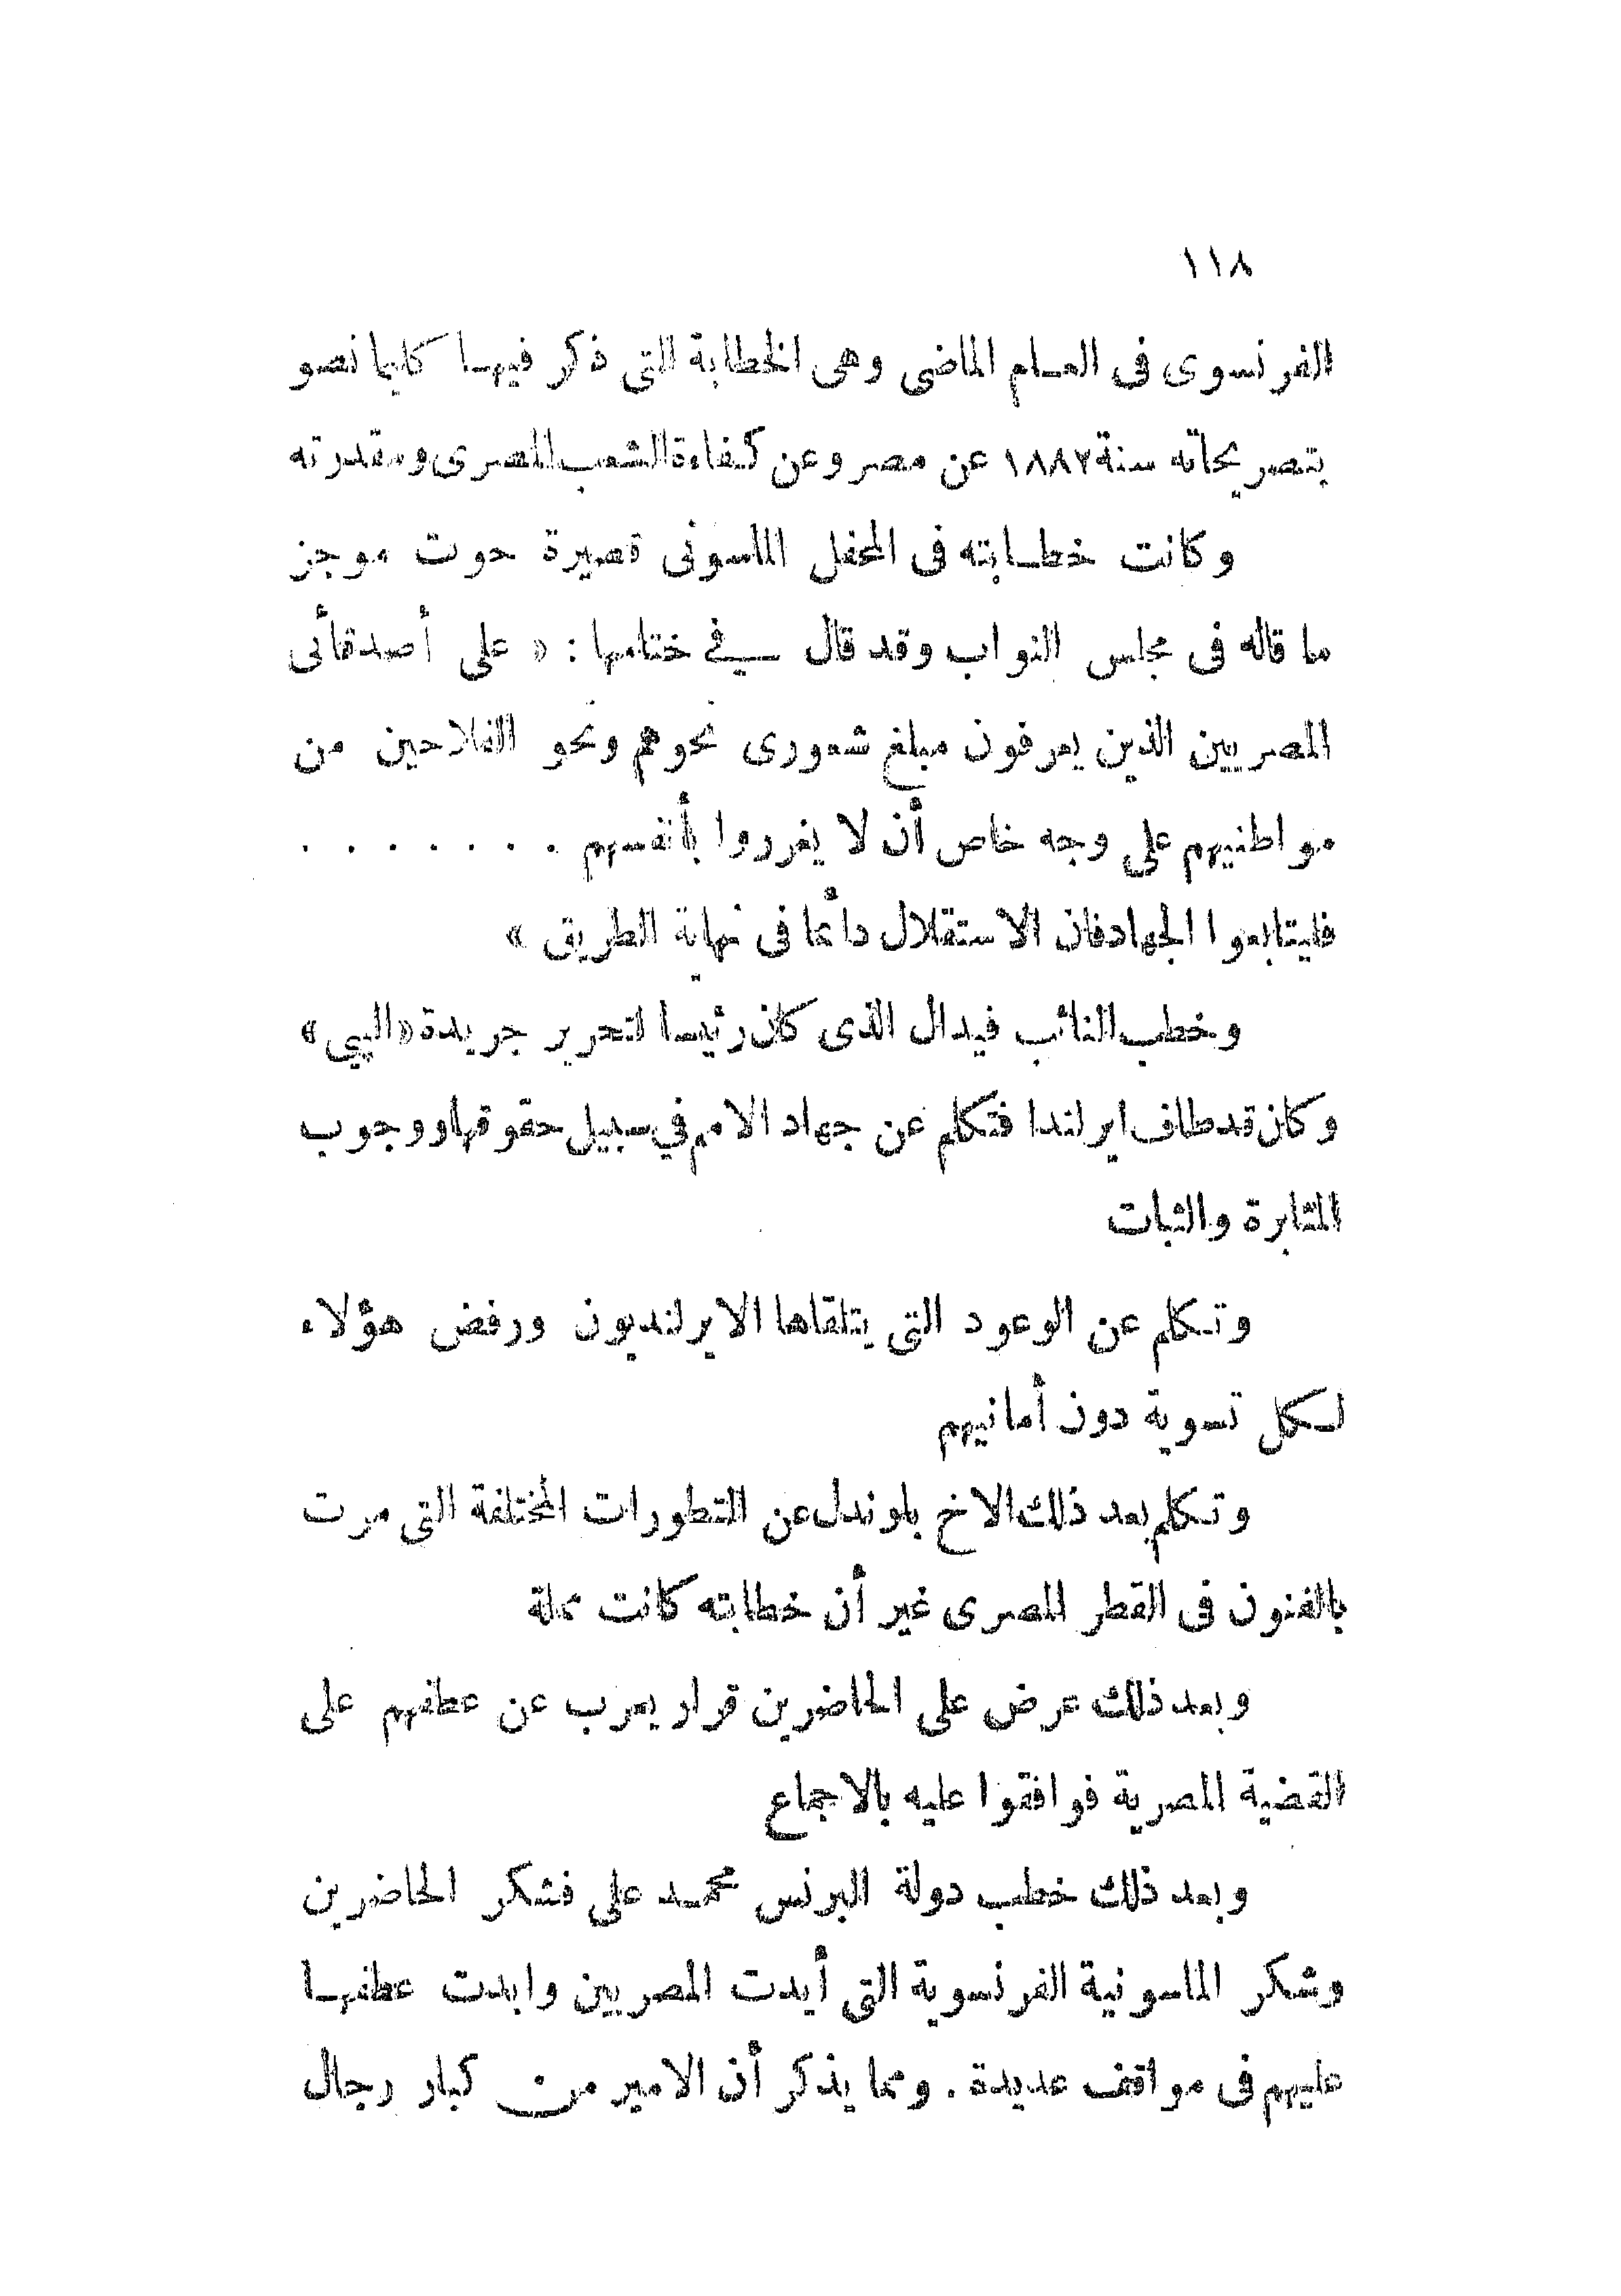 ١١٨
الفرنسوى فى العام الماضى وهى الخطابة التى ذكر فيها كليمانصو
بتصريحاته سنة ١٨٨٢ عن مصر وعن كفاءة الشعب المصرى ومقدرته
وكانت خطابته فى المحفل الماسونى قصيرة حوت موجز
ما قاله فى مجلس النواب وقد قال في ختامها : « على أصدقائى
المصريين الذين يعرفون مبلغ شعورى نحوهم ونحو الفلاحين من
مواطنيهم على وجه خاص أن لا يغرروا بأنفسهم . . . . . . . .
فليتابعوا الجهاد فان الاستقلال دائما فى نهاية الطريق »
وخطب النائب فيدال الذى كان رئيسا لتحرير جريدة « البيى »
وكان قد طاف ايرلندا فتكلم عن جهاد الامم في سبيل حقوقها ووجوب
المثابرة والثبات
وتكلم عن الوعود التى يتلقاها الايرلنديون ورفض هؤلاء
لكل تسوية دون أمانيهم
وتكلم بعد ذلك الاخ بلوندل عن التطورات المختلفة التى مرت
بالفنون فى القطر المصرى غير أن خطابته كانت مملة
وبعد ذلك عرض على الحاضرين قرار يعرب عن عطفهم على
القضية المصرية فوافقوا عليه بالاجماع
وبعد ذلك خطب دولة البرنس محمد على فشكر الحاضرين
وشكر الماسونية الفرنسوية التى أيدت المصريين وابدت عطفها
عليهم فى مواقف عديدة . ومما يذكر أن الامير من كبار رجال